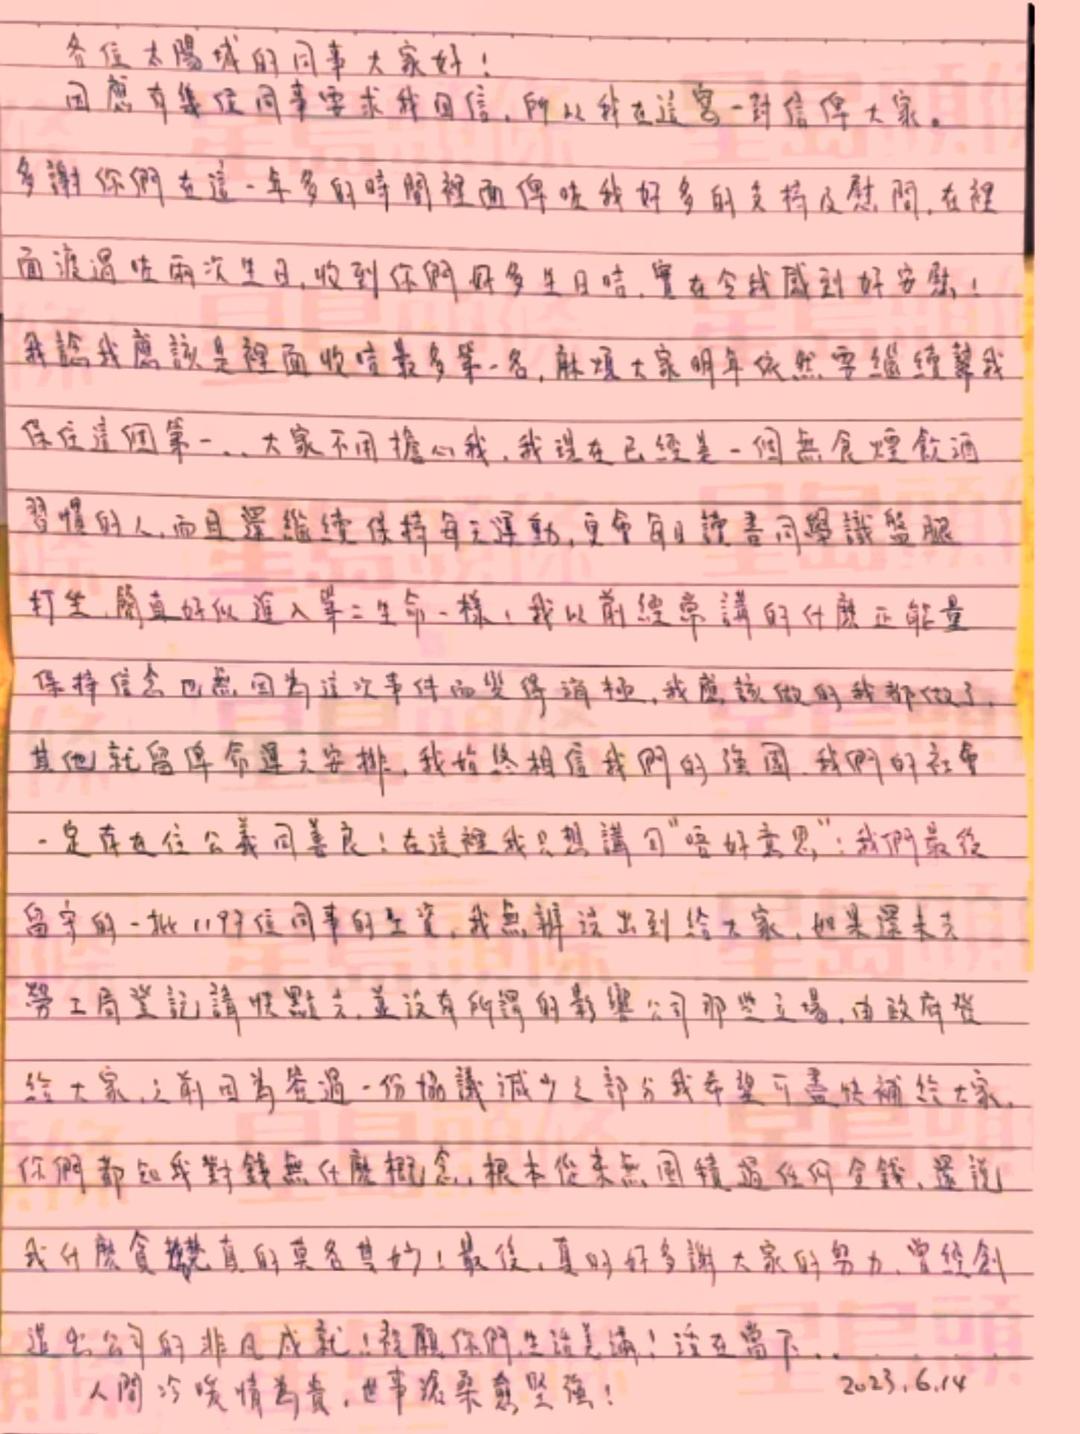 各位太陽城的同事大家好！
因應有幾位同事要求我回信，所以我在這寫一封信俾大家。
多謝你們在這一年多的時間裡面俾咗我好多的支持及慰問，在裡
面渡過咗兩次生日，收到你們好多生日咭，實在令我感到好安慰！
我諗我應該是裡面收咭最多第一名，麻煩大家明年依然要繼續幫我
保住這個第一... 大家不用擔心我，我現在已經是一個無食煙飲酒
習慣的人，而且還繼續保持每天運動，更會每日讀書同學識盤腿
打坐，簡直好似進入第二生命一樣，我以前經常講的什麼正能量
保持信念也無因為這次事件而變得消極，我應該做的我都做了，
其他就留俾命運去安排，我始終相信我們的強國，我們的社會
一定存在住公義同善良！在這裡我只想講句"唔好意思"：我們最後
留守的一批1197位同事的工資，我無辦法出到給大家，如果還未去
勞工局登記請快點去，並沒有所謂的影響公司那些立場，由政府發
給大家，之前因為簽過一份協議減少之部分我希望可盡快補給大家，
你們都知我對錢無什麼概念，根本從來無囤積過任何金錢，還說
我什麼貪婪真的莫名其妙！最後，真的好多謝大家的努力，曾經創
造出公司的非凡成就！祝願你們生活美滿！活在當下......
人間冷暖情為貴，世事滄桑愈堅強！
2023.6.14
星島頭條